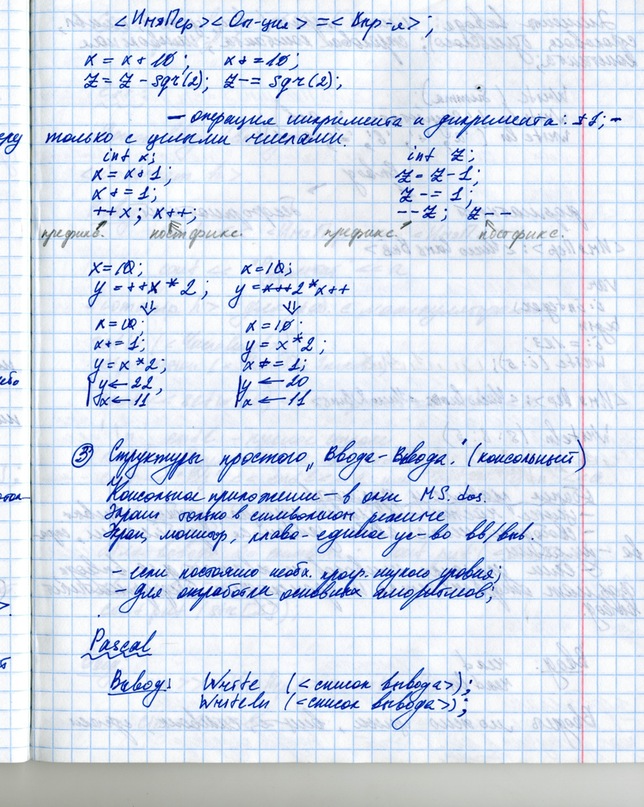 <ИмяПер><Оп-ция> =<Выр-я>;
x = x + 10; x+ = 10;
z = z - sqr(2); z-= sqr(2);
– операция инкримента и дикримента: +1; –
только с целыми числами.
int x; int z;
x = x+1; z = z-1;
x+ = 1; z-= 1;
++x; x++; --z; z--
префикс. постфикс. префикс постфикс.
x=10; x=10;
y = ++x * 2; y = x++
⇓ ⇓
x = 10; x = 10;
x+= 1; y = x * 2;
y = x * 2; x+= 1;
y ← 22, y ← 20
x ← 11 x ← 11
③ Структуры простого „Ввода-Вывода." (консольный)
Консольное приложение – в окне M.S. dos.
Экран только в символьном режиме
Экран, монитор, клава – единое ус-во вв/выв.
– если постояно необх. прогр. низкого уровня;
– для отработка основных алгоритмов;
Pascal
Вывод: Write (<список вывода>);
Writeln (<список вывода>);